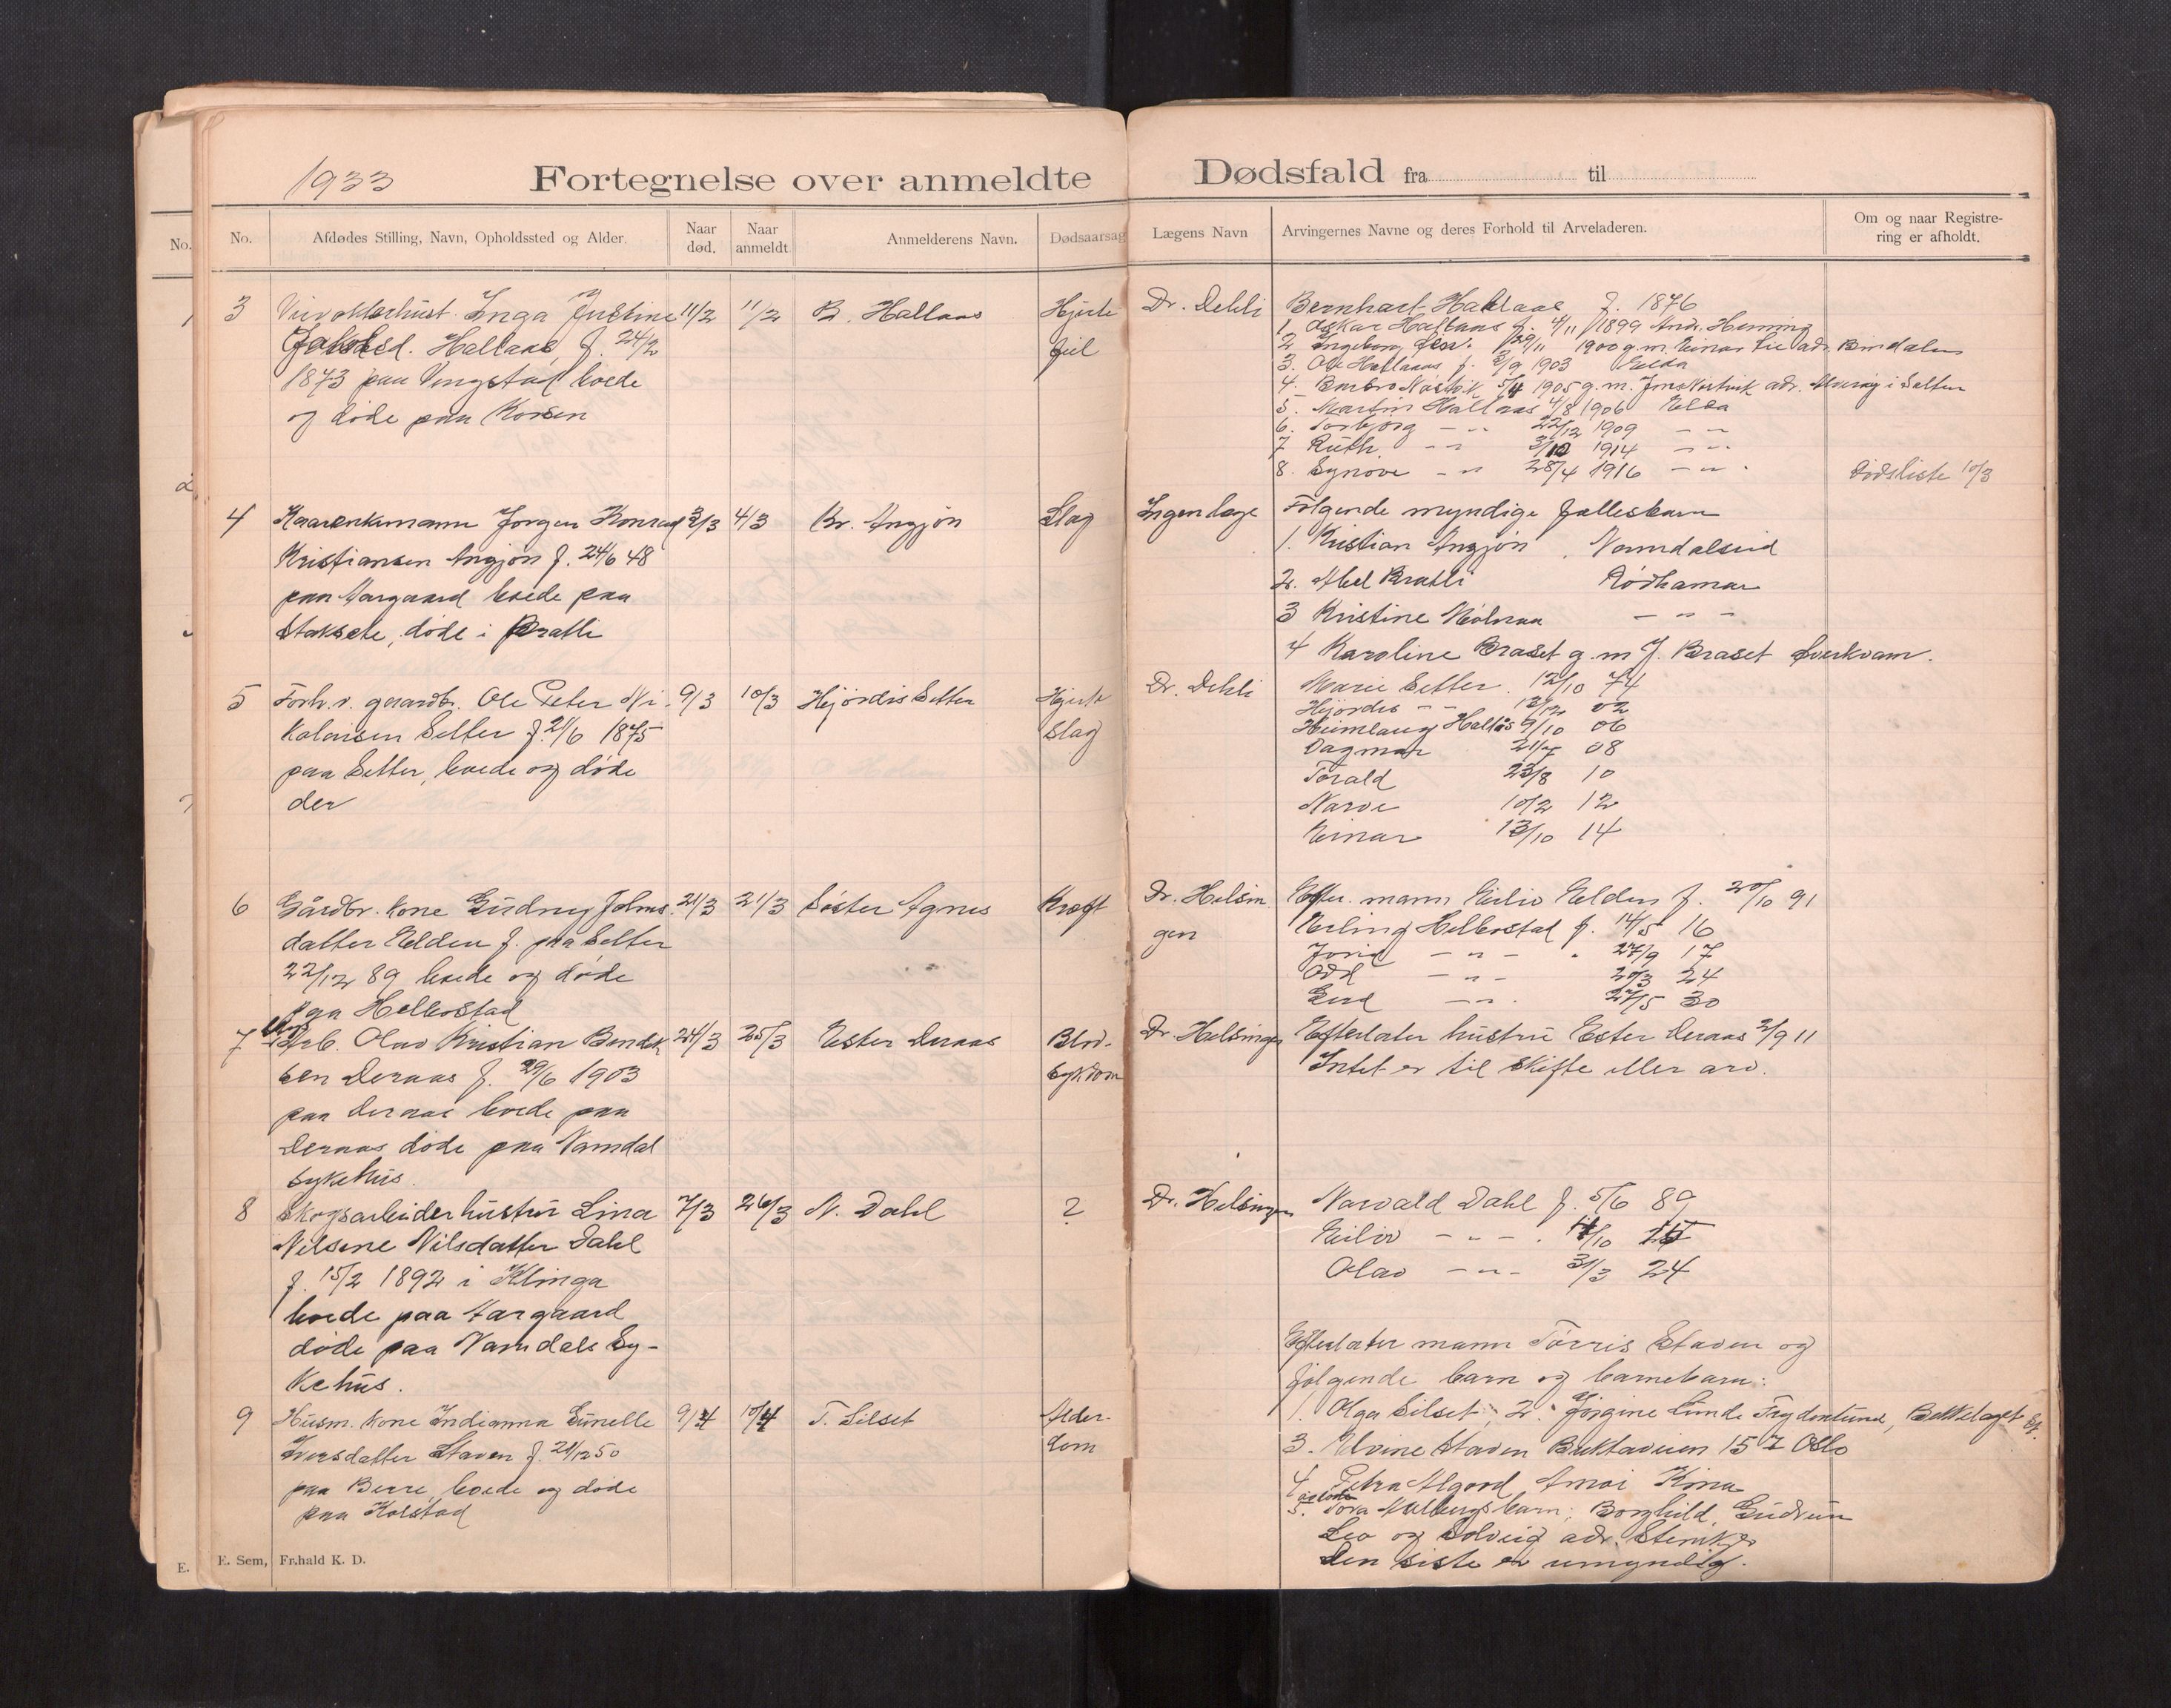 1933
Fortegnelse over anmeldte Dødsfald fra til
No. Afdødes Stilling, Navn, Opholdssted og Alder. Naar død. Naar anmeldt. Anmelderens Navn. Dødsaarsag Lægens Navn Arvingernes Navne og deres Forhold til Arveladeren. Om og naar Registrering er afholdt.
3 Inga Justine 11/2 11/2 B. Hallaas Hjerte Dr. Dehli
Hallaas f. 24/2 feil
1873 paa Vingstad boede
og døde paa
Bernhart Hallaas f. 1876
1. Oskar Hallaas f. 4/11 1899
2 Ingeborg 29/11 1900 g.m. Einar adr. Bindalen
3. Ole Hallaas f. 3/9 1903 Elda
4. Barbro 5/4 1905 g.m. adr.
5. Martin Hallaas 4/8 1906 Elda
6. Torbjørg - " - 22/12 1909 - " -
7 Ruth - " - 3/12 1914 - " -
8. Synøve - " - 28/4 1916 - " - Dødsliste 10/3
4 Kaarenkmann Jørgen Konrad 3/3 4/3 Kr. Angjøn Slag Ingen læge
Kristiansen Angjøn f. 24/6 48
paa Aargaard boede paa
Staksete, døde i Bratli
Følgende myndige fællesbarn
1. Kristian Angjøn, Namdalseid
2. Abel Bratli Rødhamar
3 Kristine - " -
4 Karoline Braset g.m J. Braset Kverkvam.
5 Forh.v. gaardbr. Ole Peter Ni- 9/3 10/3 Hjørdis Setter Hjerte Dr. Dehli
kolaisen Setter f. 21/6 1875 slag
paa Setter, boede og døde
der
Marie Setter. 12/10 74
Hjørdis - - 12/12 02
Heimlaug Hallås 9/10 06
Dagmar 21/7 08
Torald 23/8 10
Narve 10/2 12
Einar 13/10 14
6 Gårdbr. kone Gudny Johns- 21/3 21/3 Søster Agnes Kræft Dr. Helsin
datter Elden f. paa Setter gen
22/12 89 boede og døde
paa Helbostad
Efter. mann Eiliv Elden f. 20/10 91
Erling Helbostad f. 14/5 16
- " - 27/9 17
Odd - " - 20/3 24
- " - 27/5 30
7 Arb. Olav Kristian Bendik 24/3 25/3 Ester Deraas Blod- Dr. Helsingen
sen Deraas f. 29/6 1903 sykdom
paa Deraas boede paa
Deraas døde paa Namdal
sykehus.
Efterlater hustru Ester Deraas 2/9 11
Intet er til skifte eller arv.
8 Skogsarbeiderhustru Lina 7/3 26/3 N. Dahl ? Dr. Helsingen
Nilsine Nilsdatter Dahl
f. 15/2 1892 i Klinga
boede paa Aargaard
døde paa Namdals Sy-
kehus.
Narvald Dahl f. 5/6 89
Eiliv - " - 4/10 15
Olav - " - 31/3 24
9 Husm. kone Indianna Gunelle 9/4 10/4 T. Silset Alder-
Iversdatter Staven f. 21/12 50 dom
paa Berre, boede og døde
paa Kolstad
Efterlater mann Tørris Staven og
følgende barn og barnebarn:
1. Olga Silset, 2. Jørgine Lunde Frydenlund, Bekkelaget
3. Elvine Staven 15 Oslo
4. Petra Algard Amoi Kina
5. Tora barn; Borghild, Gudrun
Leo og Solveig adr. Stenkjer
Den siste er umyndig.
E. Sem, Fr.hald K. D.